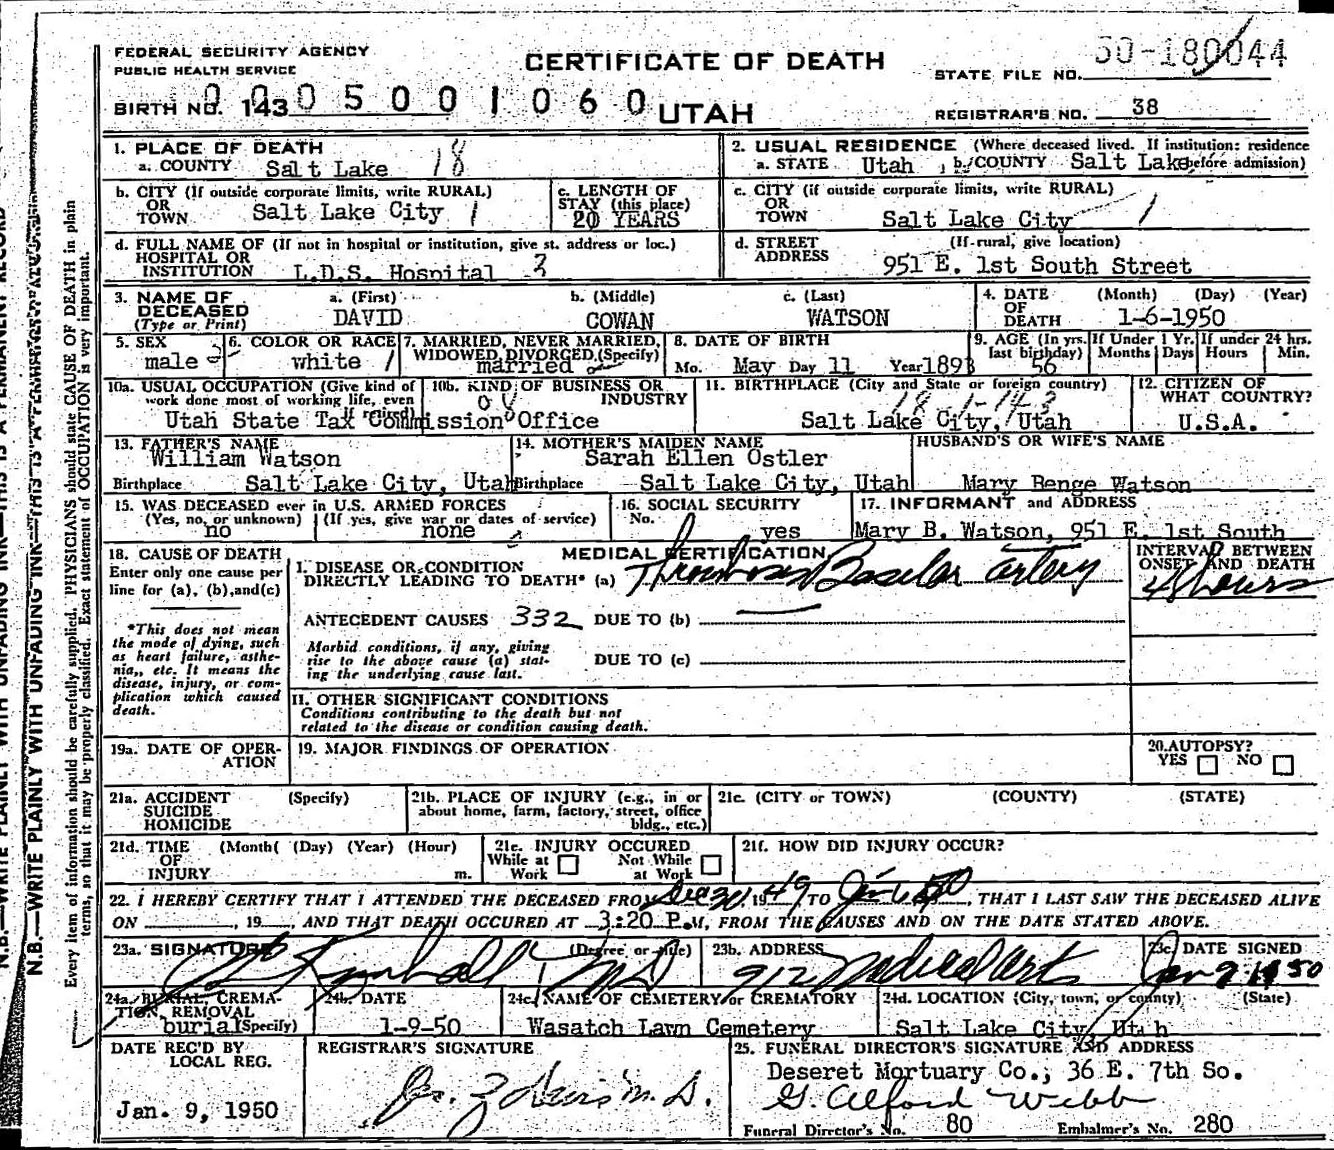 FEDERAL SECURITY AGENCY
PUBLIC HEALTH SERVICE
CERTIFICATE OF DEATH
STATE FILE NO. 50-180044
BIRTH NO. 143 0005001060 UTAH
REGISTRAR'S NO. 38
1. PLACE OF DEATH
a. COUNTY Salt Lake 18
2. USUAL RESIDENCE (Where deceased lived. If institution: residence
a. STATE Utah b. COUNTY Salt Lake before admission)
b. CITY (If outside corporate limits, write RURAL)
OR
TOWN Salt Lake City 1
c. LENGTH OF
STAY (this place)
20 YEARS
c. CITY (if outside corporate limits, write RURAL)
OR
TOWN Salt Lake City 1
d. FULL NAME OF (If not in hospital or institution, give st. address or loc.)
HOSPITAL OR
INSTITUTION L.D.S. Hospital 3
d. STREET (If rural, give location)
ADDRESS 951 E. 1st South Street
3. NAME OF
DECEASED
(Type or Print)
a. (First) b. (Middle) c. (Last)
DAVID COWAN WATSON
4. DATE (Month) (Day) (Year)
OF
DEATH 1-6-1950
5. SEX
male
6. COLOR OR RACE
white 1
7. MARRIED, NEVER MARRIED,
WIDOWED, DIVORCED (Specify)
married 2
8. DATE OF BIRTH
Mo. May Day 11 Year 1893
9. AGE (In yrs.
last birthday)
56
If Under 1 Yr.
Months Days
If under 24 hrs.
Hours Min.
10a. USUAL OCCUPATION (Give kind of
work done most of working life, even
if retired)
10b. KIND OF BUSINESS OR
INDUSTRY
Utah State Tax Commission Office
11. BIRTHPLACE (City and State or foreign country)
18 1-143
Salt Lake City, Utah
12. CITIZEN OF
WHAT COUNTRY?
U.S.A.
13. FATHER'S NAME
William Watson
Birthplace Salt Lake City, Utah
14. MOTHER'S MAIDEN NAME
Sarah Ellen Ostler
Birthplace Salt Lake City, Utah
HUSBAND'S OR WIFE'S NAME
Mary Benge Watson
15. WAS DECEASED ever in U.S. ARMED FORCES
(Yes, no, or unknown) (If yes, give war or dates of service)
no none
16. SOCIAL SECURITY
No. yes
17. INFORMANT and ADDRESS
Mary B. Watson, 951 E. 1st South
18. CAUSE OF DEATH
Enter only one cause per
line for (a), (b), and (c)
*This does not mean
the mode of dying, such
as heart failure, asthe-
nia, etc. It means the
disease, injury, or com-
plication which caused
death.
MEDICAL CERTIFICATION
I. DISEASE OR CONDITION
DIRECTLY LEADING TO DEATH* (a) Thrombosis Basilar Artery
INTERVAL BETWEEN
ONSET AND DEATH
48 hours
ANTECEDENT CAUSES 332 DUE TO (b)
Morbid conditions, if any, giving
rise to the above cause (a) stat-
ing the underlying cause last.
DUE TO (c)
II. OTHER SIGNIFICANT CONDITIONS
Conditions contributing to the death but not
related to the disease or condition causing death.
19a. DATE OF OPER-
ATION
19. MAJOR FINDINGS OF OPERATION
20. AUTOPSY?
YES NO
21a. ACCIDENT (Specify)
SUICIDE
HOMICIDE
21b. PLACE OF INJURY (e.g., in or
about home, farm, factory, street, office
bldg., etc.)
21c. (CITY or TOWN) (COUNTY) (STATE)
21d. TIME (Month( (Day) (Year) (Hour)
OF
INJURY m.
21e. INJURY OCCURED
While at Work Not While at Work
21f. HOW DID INJURY OCCUR?
22. I HEREBY CERTIFY THAT I ATTENDED THE DECEASED FROM Dec 30, 1949 TO Jan 6 50, THAT I LAST SAW THE DECEASED ALIVE
ON , 19 , AND THAT DEATH OCCURED AT 3:20 P.M, FROM THE CAUSES AND ON THE DATE STATED ABOVE.
23a. SIGNATURE (Degree or title)
Kimball MD
23b. ADDRESS
912 Medical Arts
23c. DATE SIGNED
Jan 9 1950
24a. BURIAL, CREMA-
TION, REMOVAL
burial (Specify)
24b. DATE
1-9-50
24c. NAME OF CEMETERY or CREMATORY
Wasatch Lawn Cemetery
24d. LOCATION (City, town, or county) (State)
Salt Lake City, Utah
DATE REC'D BY
LOCAL REG.
Jan. 9, 1950
REGISTRAR'S SIGNATURE
M.D.
25. FUNERAL DIRECTOR'S SIGNATURE AND ADDRESS
Deseret Mortuary Co., 36 E. 7th So.
G. Alford Webb
Funeral Director's No. 80 Embalmer's No. 280
N.B.—WRITE PLAINLY WITH UNFADING INK—THIS IS A PERMANENT RECORD
Every item of information should be carefully supplied. PHYSICIANS should state CAUSE OF DEATH in plain
terms, so that it may be properly classified. Exact statement of OCCUPATION is very important.